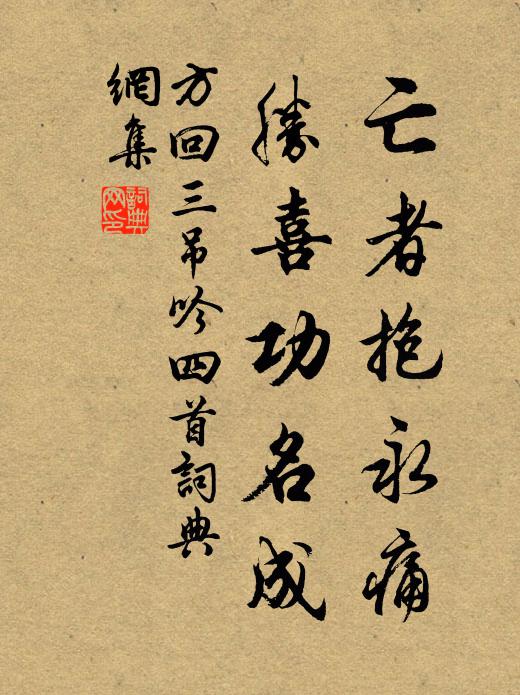 亡者抱永痛
勝喜功名成
方回三吊吟四首詞典
網集
詞典網印